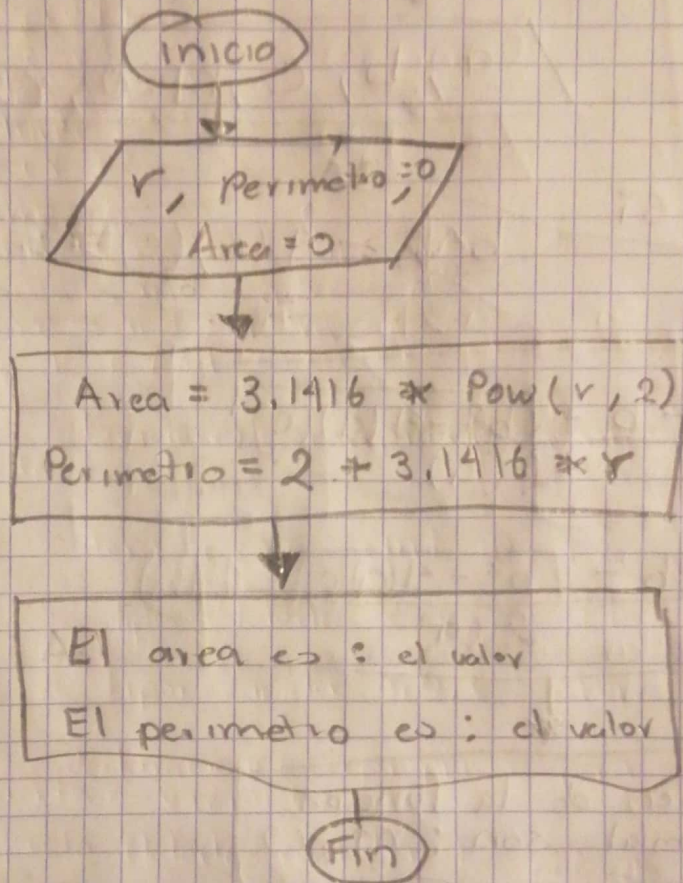 inicio
r, Perimetro=0,
Area = 0
Area = 3.1416 * Pow(r, 2)
Perimetro = 2 * 3.1416 * r
El area es : el valor
El perimetro es : el valor
Fin